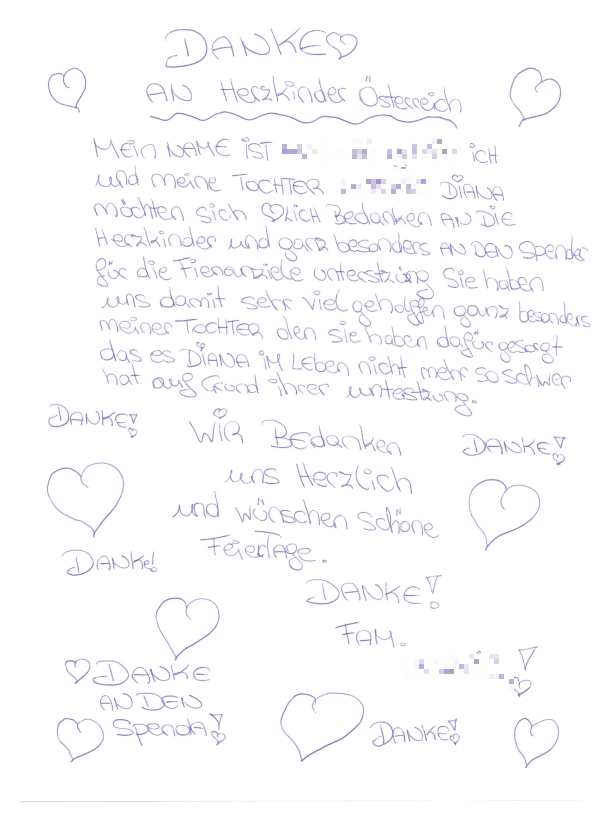 DANKE
AN Herzkinder Österreich
MEIN NAME IST ICH
und meine TOCHTER DIANA
möchten sich ♡LICH BEDANKEN AN DIE
Herzkinder und ganz besonders AN DEN Spender
für die Fienanziele unterstzüng Sie haben
uns damit sehr viel geholfen ganz besonders
meiner TOCHTER den sie haben dafür gesorgt
das es DIANA IM LEBEN nicht mehr so schwer
hat auf Grund ihrer unterstzung.
DANKE!
WIR BEDANKEN
DANKE!
uns Herzlich
und wünschen Schöne
FEIERTAGE.
DANKE!
DANKE!
FAM.
♡DANKE
AN DEN
SpendA!
DANKE!